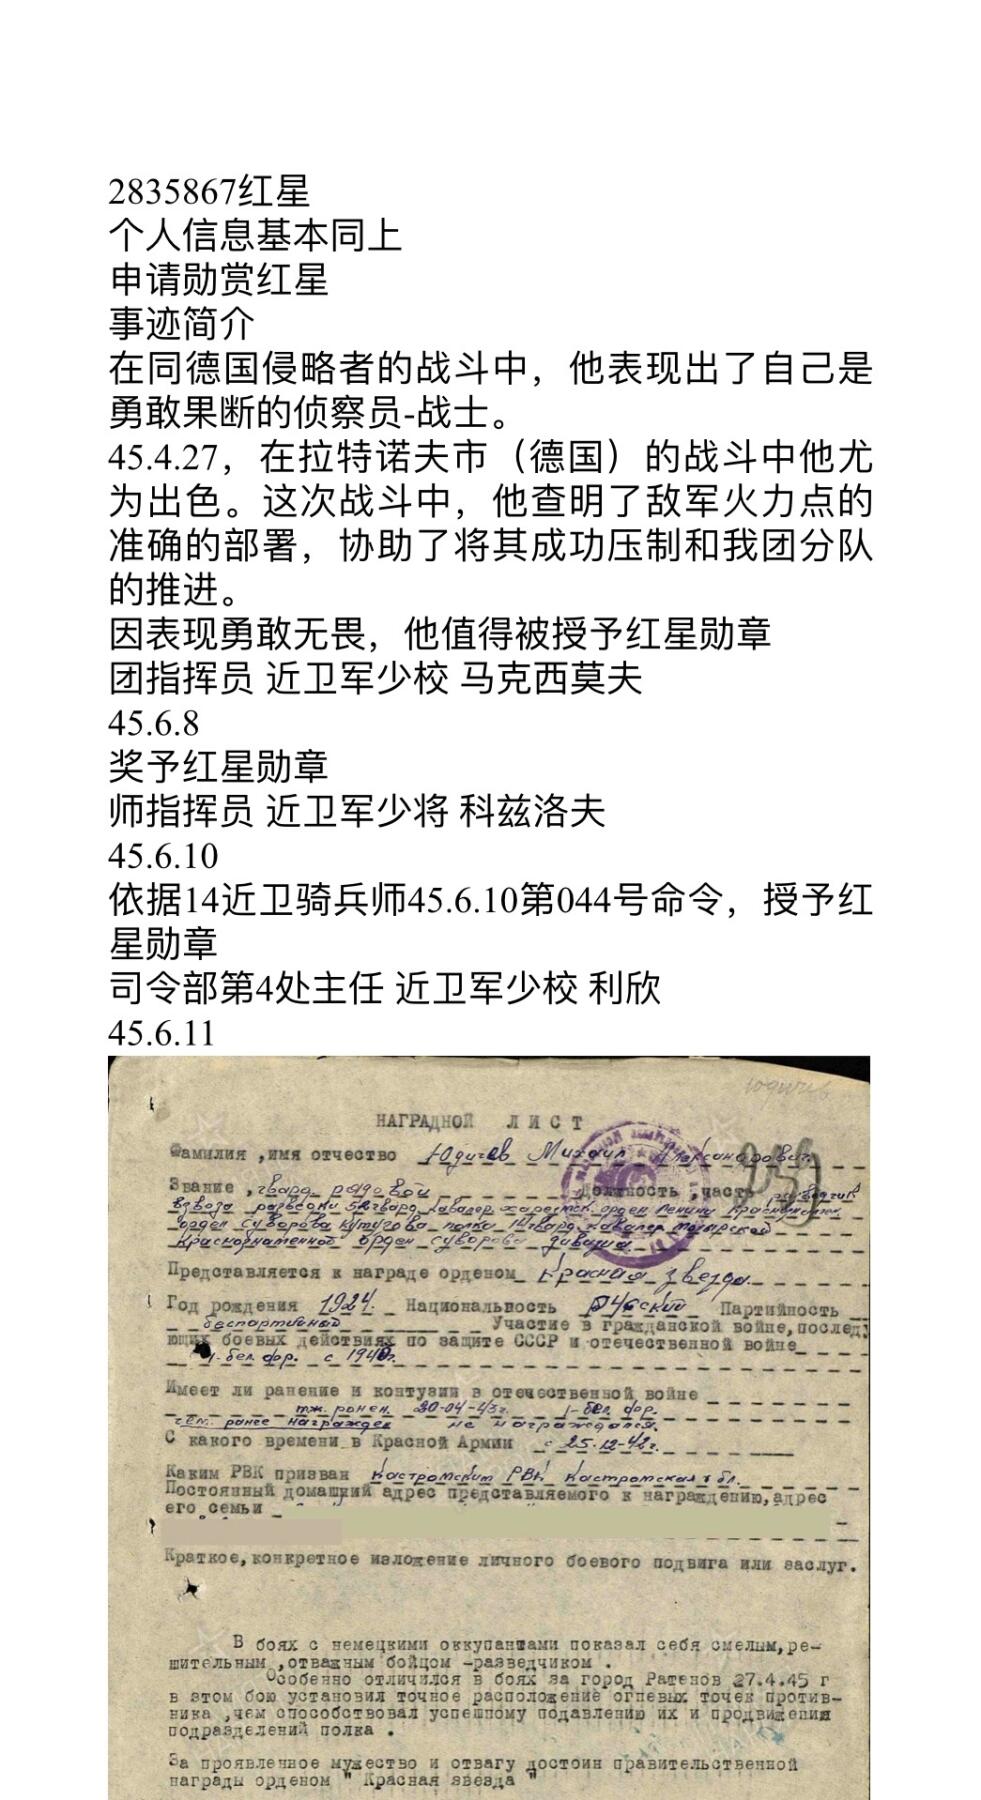 2835867红星
个人信息基本同上
申请勋赏红星
事迹简介
在同德国侵略者的战斗中，他表现出了自己是
勇敢果断的侦察员-战士。
45.4.27，在拉特诺夫市（德国）的战斗中他尤
为出色。这次战斗中，他查明了敌军火力点的
准确的部署，协助了将其成功压制和我团分队
的推进。
因表现勇敢无畏，他值得被授予红星勋章
团指挥员 近卫军少校 马克西莫夫
45.6.8
奖予红星勋章
师指挥员 近卫军少将 科兹洛夫
45.6.10
依据14近卫骑兵师45.6.10第044号命令，授予红
星勋章
司令部第4处主任 近卫军少校 利欣
45.6.11
НАГРАДНОЙ ЛИСТ
Фамилия ,имя отчество Юдичев Михаил Александрович
Звание , гвард. рядовой Должность ,часть разведчик
взвода разведки 54 гвард. кавалер. орден Ленина
орден Суворова Кутузова полка 14 гвард. кавалер. Мозырской
Краснознаменной орден Суворова дивизии
Представляется к награде орденом Красная звезда
Год рождения 1924. Национальность Русский Партийность
беспартийный Участие в гражданской войне,послед
ющих боевых действиях по защите СССР и отечественной войне
1-бел. фр. с
Имеет ли ранение и контузии в отечественной войне
тж. ранен. 20-04-43г. 1-бел. фр.
чем ранее награжден не награждался.
С какого времени в Красной Армии с 25-12-42г.
Каким РВК призван Костромским РВК Костромская обл.
Постоянный домашний адрес представляемого к награждению,адрес
его семьи
Краткое,конкретное изложение личного боевого подвига или заслуг.
В боях с немецкими оккупантами показал себя смелым,ре-
шительным ,отважным бойцом -разведчиком .
Особенно отличился в боях за город Ратенов 27.4.45 г
в этом бою установил точное расположение огневых точек против-
ника ,чем способствовал успешному подавлению их и продвижения
подразделений полка .
За проявленное мужество и отвагу достоин правительственной
награды орденом " Красная звезда "